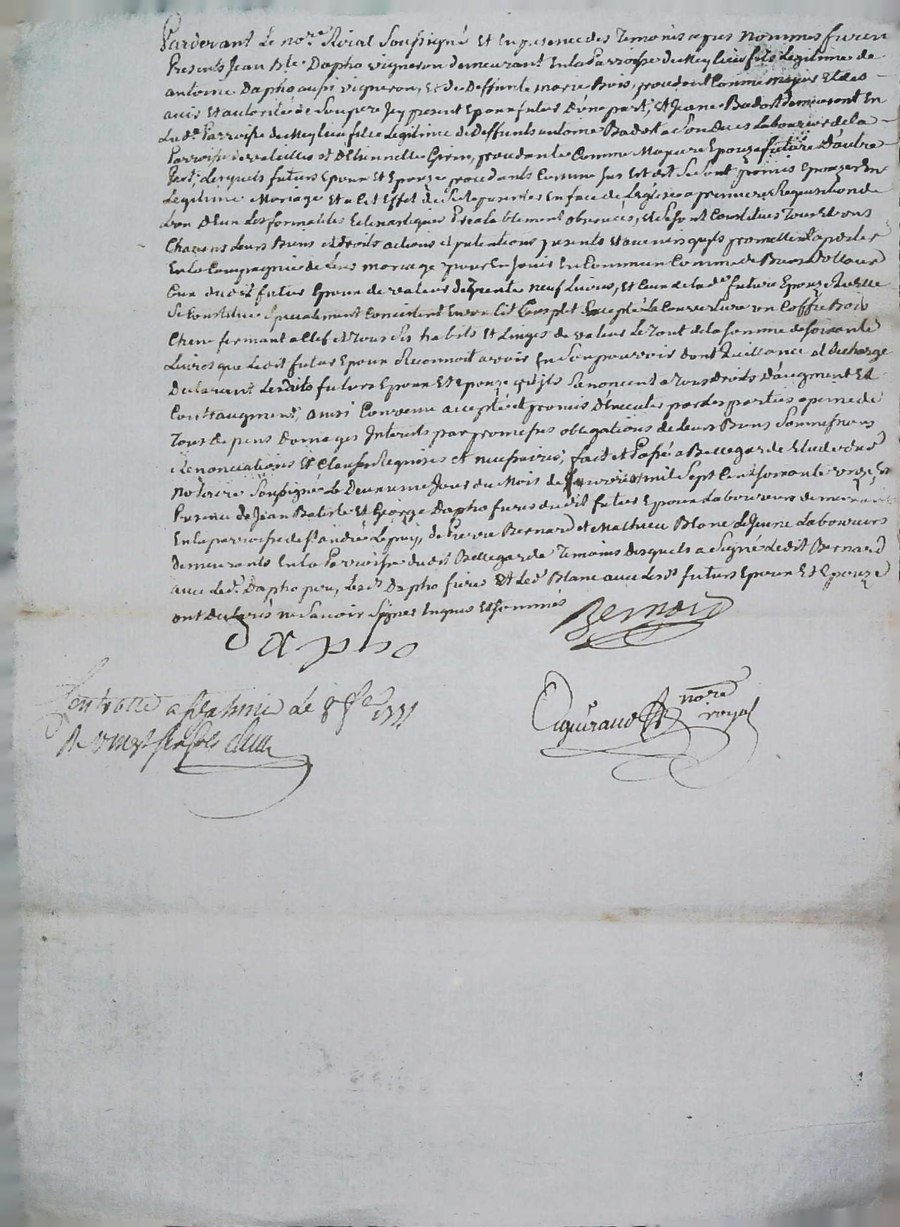 Pardevant Le no.re Roial Soussigné Et En presence des Temoins cy as nommés furent
Presents Jean Bte. Dapho vigneron demeurant En la Parroisse de Meylieu fils Legitime de
antoine Dapho aussi vigneron, Et de Deffunte marie Bois, procedant Comme majeur Et des
avis Et autorité de Son pere Icy present Epoux futur D'une part, Et Jeane Badost demeurant En
La de. Parroisse de Meylieu fille Legitime de Deffunts antoine Badost Laboureur de la
Parroisse de valeilles Et D'Etiennette Grin, procedante Comme Majeure Epouze future D'autre
Part, Lesquels futurs Epoux Et Epouze procedants Comme Sus Est dit Se Sont promis Epouzer En
Legitime Mariage Et a Cet Effet de Se Representer En face de Leglise a premiere Requisition de
L'un D'Eux Les formalités Eclesiastiques Prealablement observées, Et Se Sont Constitués Tous Et uns
Chacuns Leurs Biens Et droits actions Et pretentions presents Et avenir quils promettent aporter
En La Compagnie de Leur mariage pour En Jouir En Commun Comme de Biens Dottaux
Ceux dudit futur Epoux de valeur de trente neuf Livres, Et Ceux de la de. future Epouze quelle
Se Constitue Specialement Consistent En un Lit Complet Excepté La Couverture un Coffre Bois
Chene fermant a Clef Et Tous Ses habits Et Linges de valeur Le Tout de la Somme de Soixante
Livres que Ledit futur Epoux Reconnoit avoir En Son pouvoir dont quittance Et Decharge
Declarant Lesdits futurs Epoux Et Epouze quils Renoncent a Tous Droits D'augment Et
Contraugment, ainsi Convenu accepté Et promis D'Executer par des parties a peine de
Tous Depens Domages Interets par promesses obligations de Leurs Biens Soumissions
Renonciations Et Clauses Requises Et necessaires, fait Et Passé a Bellegarde Etude dudt
notaire Soussigné Le Deuxieme Jour du Mois de fevrier mil Sept Cent Soixante onze En
Presence de Jean Batiste Et George Dapho freres dudit futur Epoux Laboureurs demeurants
En La parroisse de St andré Le puy, de Pierre Bernard Et Mathieu Blanc Le Jeune Laboureurs
demeurants En La Parroisse dudit Bellegarde Temoins desquels a Signé Ledit Bernard
avec Led. Dapho pere, Lesds. Dapho freres Et Led. Blanc avec Lesds. futurs Epoux Et Epouze
ont Declarés ne Savoir Signer Enquis Et Sommés
Bernard
Dapho
Controllé a St Galmier le 8 fe. 1771
R vingt six sols
no.re
royal